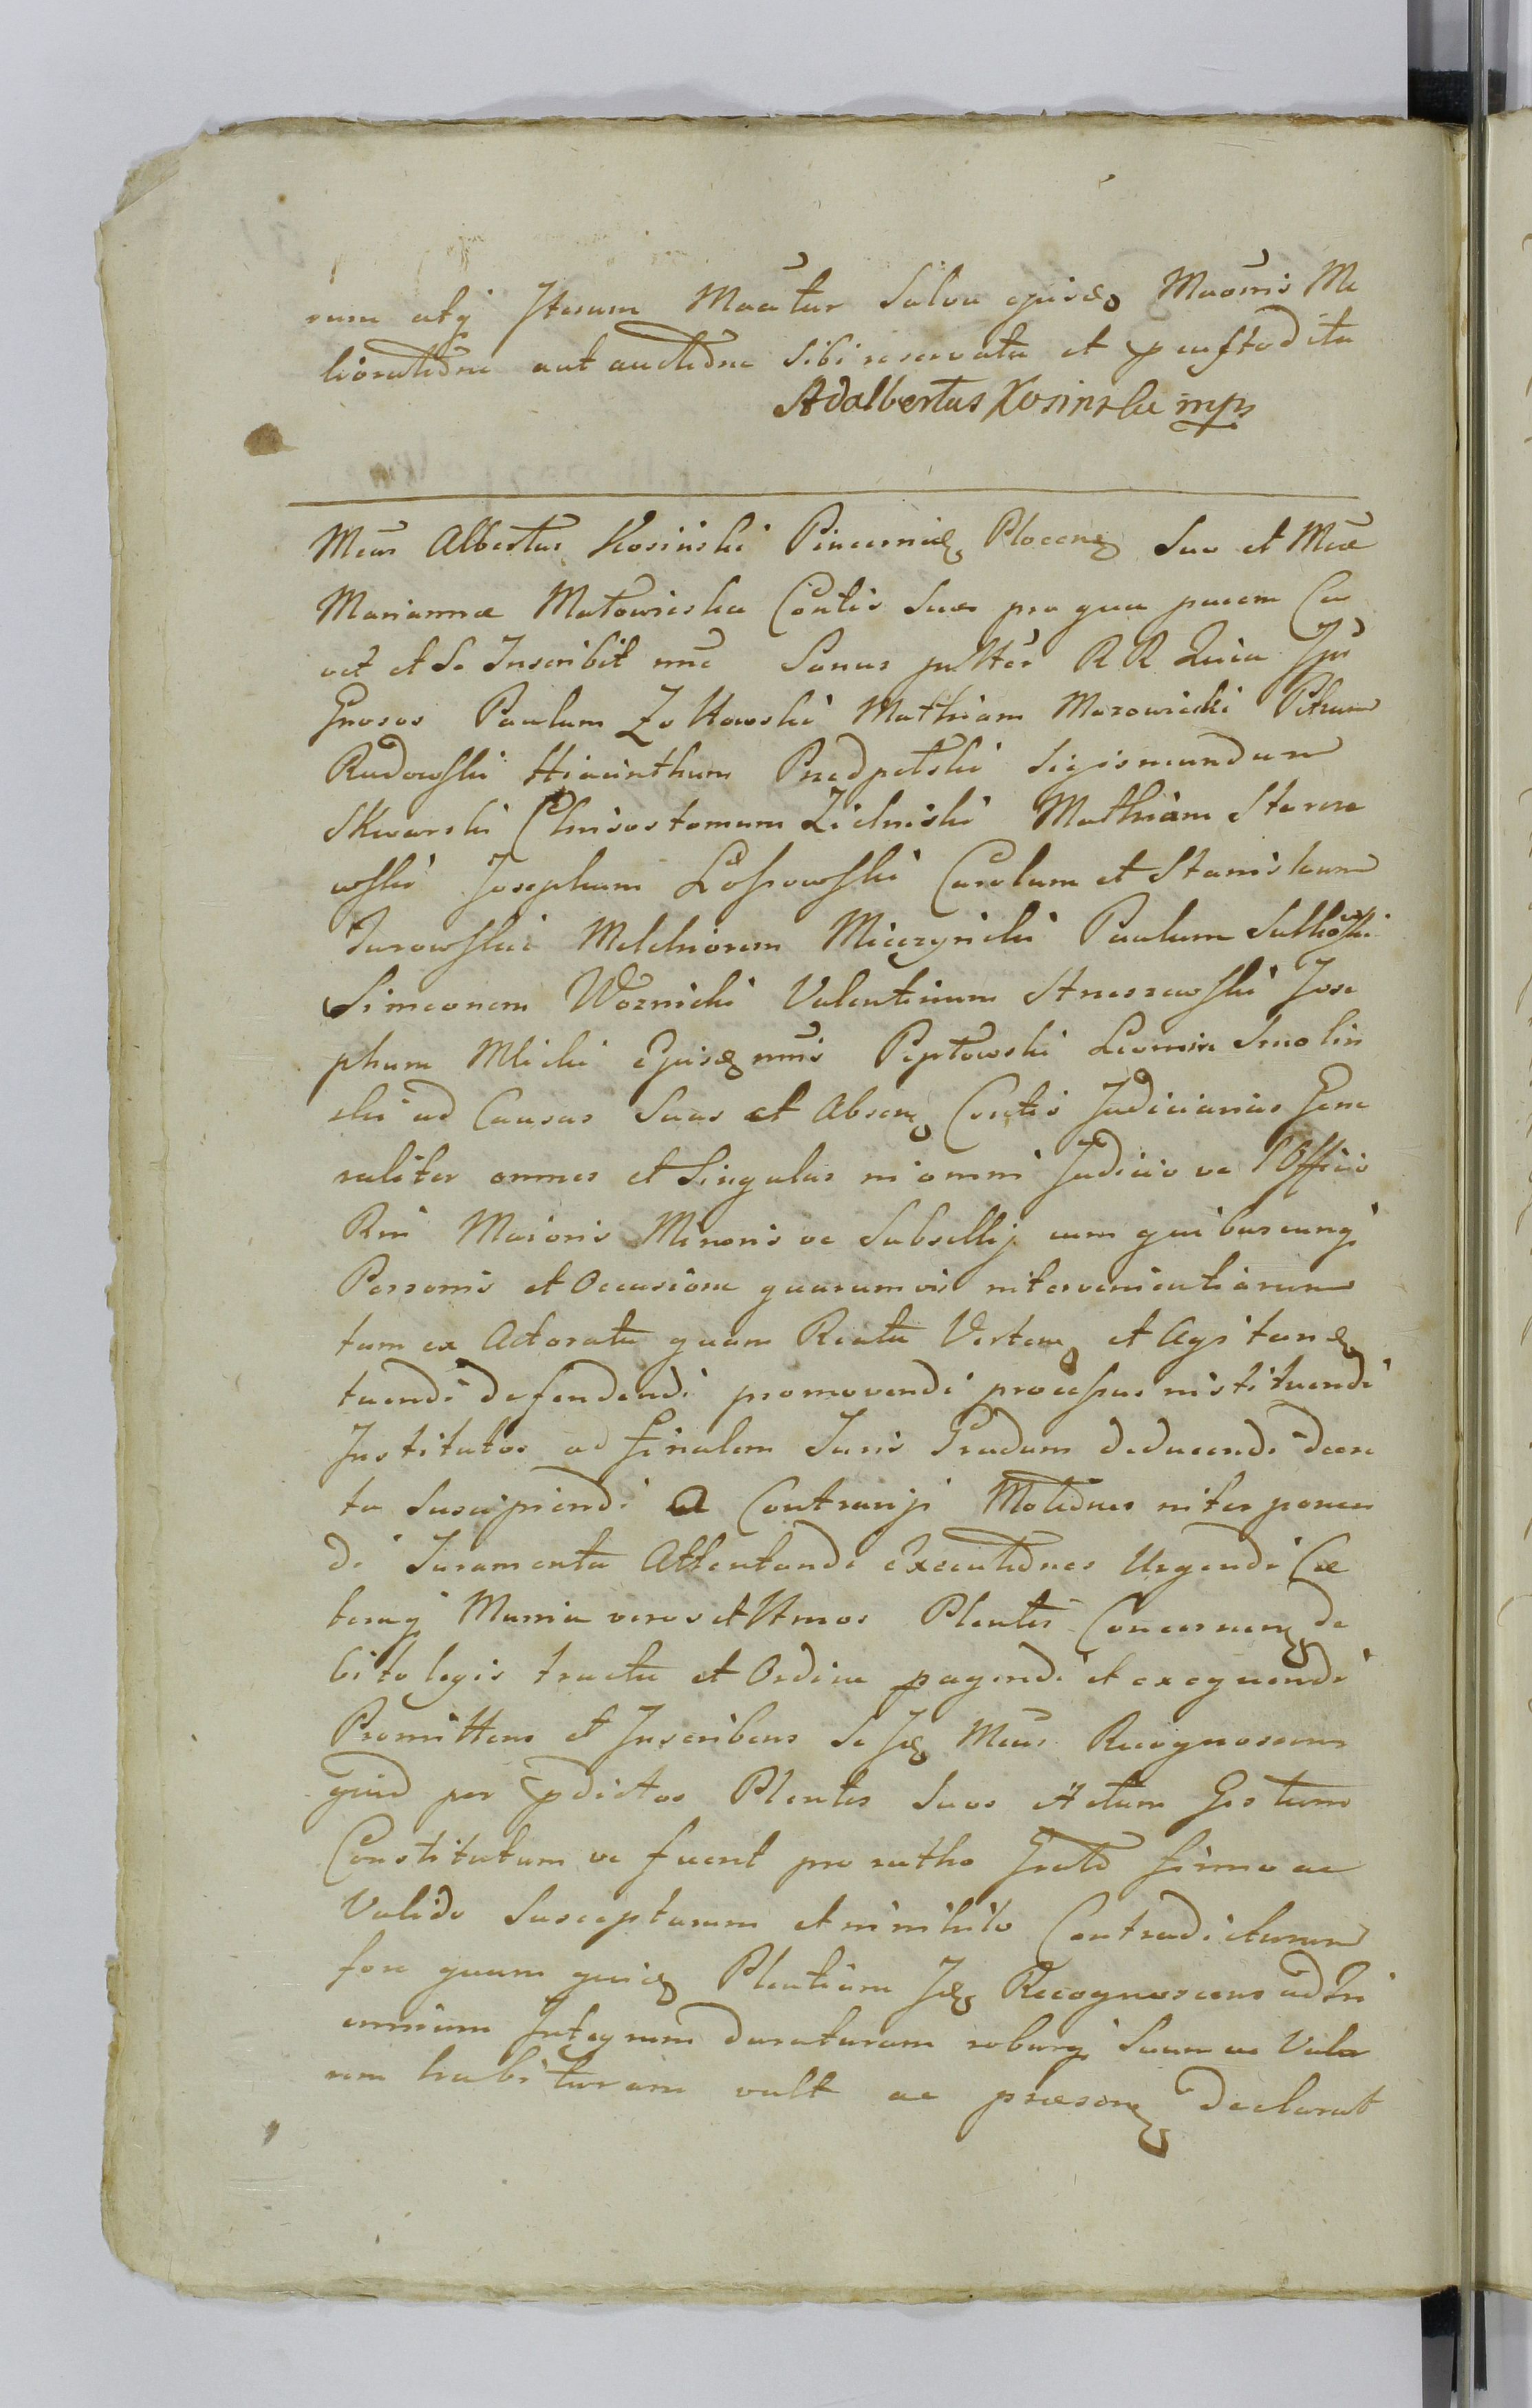 rum atq Iterum Maatur Salva ejusq Maonis Me
lioratione aut auctione Sibi reservata et pcustodita
Adalbertus Kosinski mp
Mcus Albertus Kosinski Pincernid Plocen Suo et Mcæ
Mariannæ Matowieska Contis Suæ pro qua pacem Ca
vet et Se Inscribit nne Sanus R R Quia Ipse
Gnosos Paulum Zołtowski Mathiam Mazowiecki Petrum
Radowski Hiacinthum Przedpełski Sigismundum
Skwarski Chrisostomum Zielinski Mathiam Starcze
wski Josephum Lossowski Carolum et Stanislaum
Jurowskie Melchiorem Mieczynski Paulum Sulkowski
Simeonem Woznicki Valentinum Straszewski Jose
phum Mlicki Ejusq nnis Peptowski Leonem Smolin
ski ad Causas Suas et Absen Contis Judiciarias Gene
raliter omnes et Singulas in omni Judicio ve Officio
Rni Maioris Minoris ve Subsellij cum quibuscunq
Personis et Occasione quarumvis intervenientiarum
tam ex Actoratu quam Reatu Verten et Agitan
tuendi defendendi promovendi processus instituendi
Institutos ad finalem Juris Gradum deducendi decre
ta Suscipiendi a Contrarijs Motiones interponen
di Juramenta Attentandi Executiones Urgendi Cæ
teraq Munia veros et Ltmos Plentes Concernen de
bito legis tractu et Ordine pagendi et exequendi
Promittens et Inscribens Se Id Mcus Recognoscens
quid per pdictos Plentes Suos Actum Gestum
Constitutum ve fuerit pro ratho Grato firmo ac
Valido Suscepturum et in nihilo Contradicturum
fore quam quid Plentiam Id Recognoscens ad Tri
ennium Integrum duraturam roburq Suum ac Valo
rem habituram vult ac præsen declarat